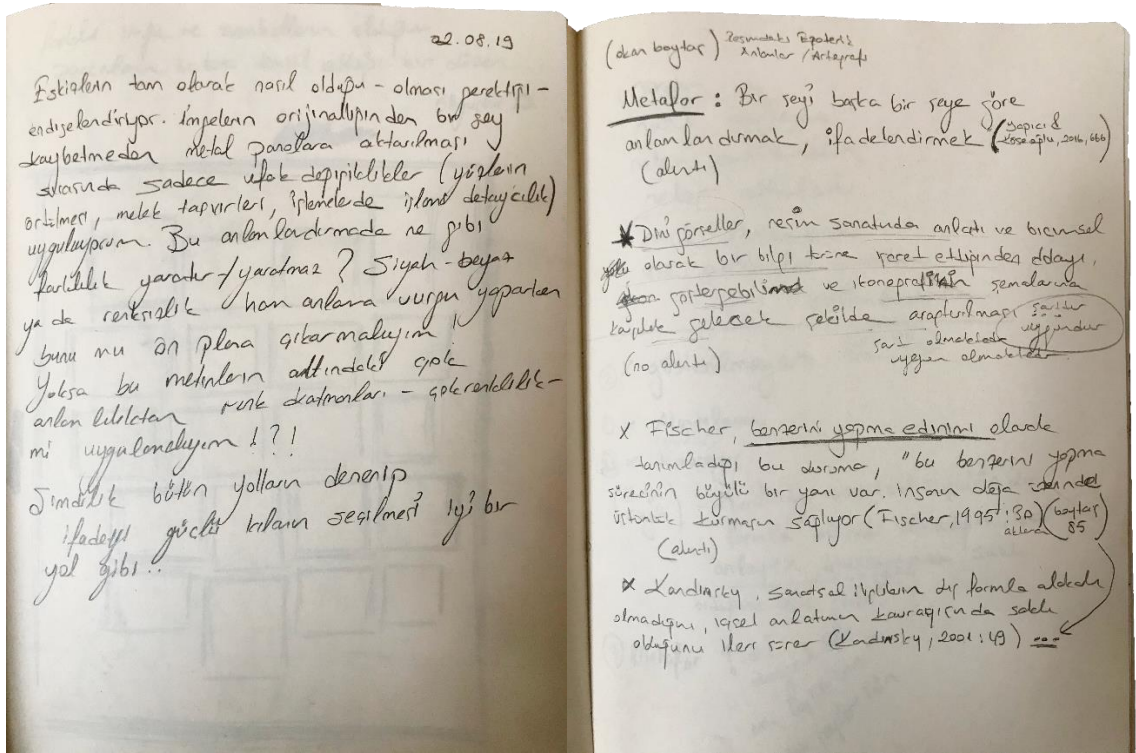 22.08.19
Eskizlerin tam olarak nasıl olduğu - olması gerektiği -
endişelendiriyor. İmgelerin orijinalliğinden bir şey
kaybetmeden metal panolara aktarılması
sırasında sadece ufak değişiklikler (yüzlerin
örtülmesi, melek tasvirleri, işlemelerde işleme detaycılık)
uyguluyorum. Bu anlamlandırmada ne gibi
farklılık yaratır-/yaratmaz? Siyah-beyaz
ya da renksizlik ham anlama vurgu yaparken
bunu mu ön plana çıkarmalıyım!
Yoksa bu metinlerin altındaki çok
anlamlılıktan renk katmanları - çok renklilik -
mi uygulamalıyım!?!
Şimdilik bütün yolların denenip
ifadeyi güçlü kılanın seçilmesi iyi bir
yol gibi..
(okan boytaş) Resimdeki Ezoterik
Anlamlar / Artografi
Metafor : Bir şeyi başka bir şeye göre
anlamlandırmak, ifadelendirmek (Yapıcı &
Köseoğlu, 2016, 666)
(alıntı)
* Dini görseller, resim sanatında anlatı ve biçimsel
olarak bir bilgi türüne işaret ettiğinden dolayı,
göstergebilim ve ikonografinin şemalarına
karşılık gelecek şekilde araştırılması şarttır
uygundur
şart olmaktadır
uygun olmaktadır
(no alıntı)
x Fischer, benzerini yapma edinimi olarak
tanımladığı bu duruma, "bu benzerini yapma
sürecinin büyülü bir yanı var. İnsanın doğa üzerinde
üstünlük kurmasını sağlıyor (Fischer, 1995: 30
aktaran (boytaş
85)
(alıntı)
x Kandinsky, sanatsal ilişkilerin dış formla alakalı
olmadığını, içsel anlatımın kavrayışında saklı
olduğunu ileri sürer (Kandinsky, 2001: 49) ...